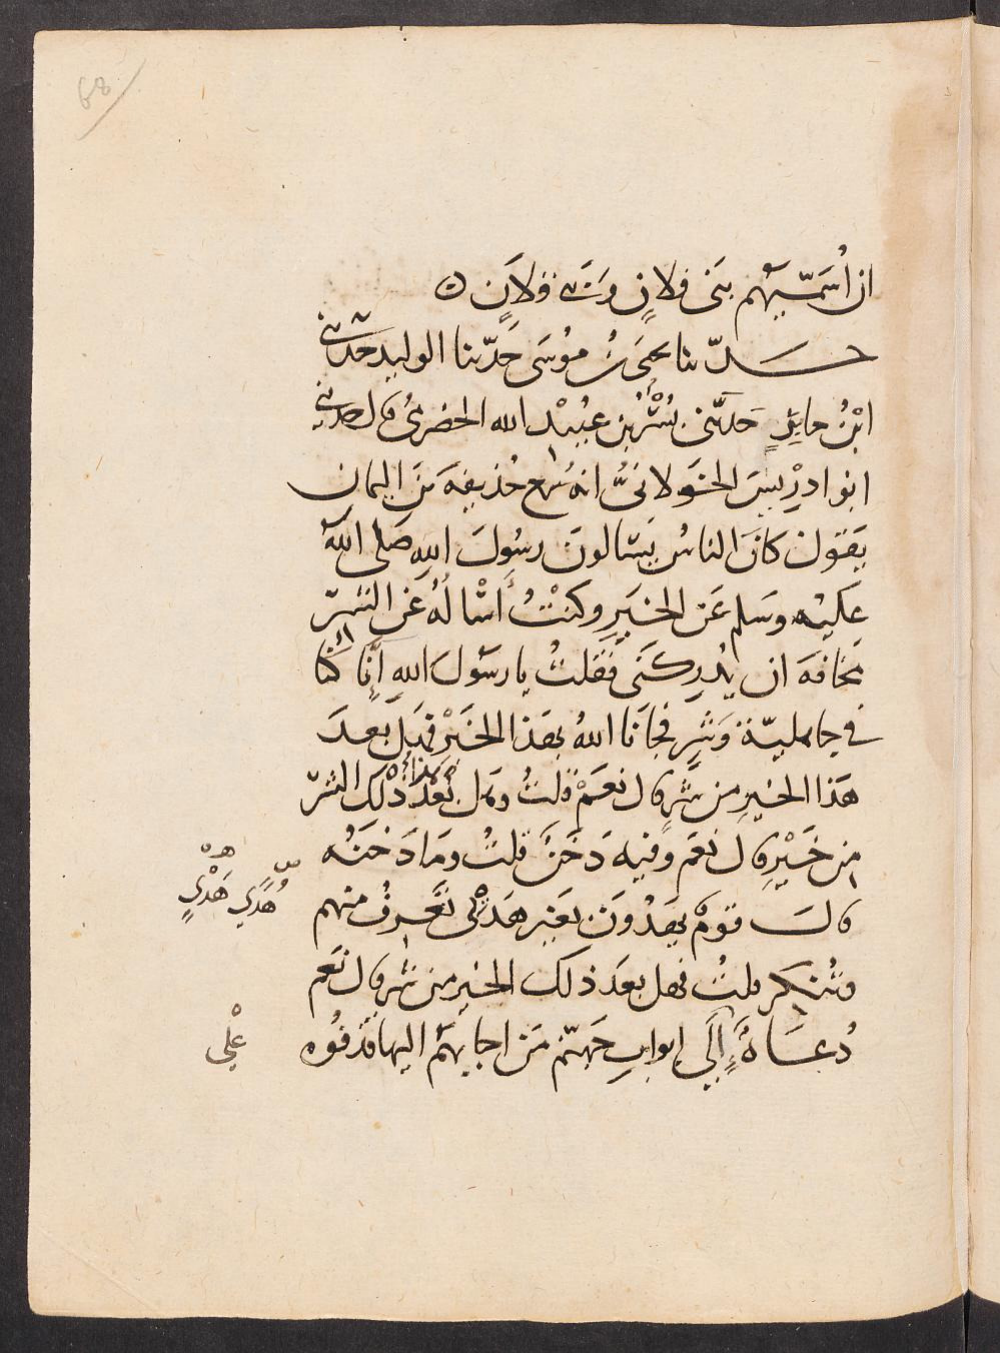 68
ان أُسَمّيَهُم بَنى فلانٍ وَبَنى فلانٍ ه
حدّثنا يحيَى بنُ موُسَى حَدّثنا الوليد حدّثنى
ابْنُ جابرٍ حَدّثنى بُسْرُ بن عُبَيْد الله الحضرمىُّ قال حدثنى
ابو ادرِيسَ الخَولانىُّ انهُ سَمِع حُذيفةَ بنَ اليمان
يَقول كانَ الناسُ يَسْالونَ رسُولَ اللهِ صَلى اللهُ
عَليْه وسَلم عَن الخيَرِ وكنْتُ أسْالُهُ عَن الشرّ
مخافةَ ان يُدرِكَنى فقلتُ يا رسَولَ اللهِ إنّا كنا
فى جاهليّة وَشرٍ فجاَنا اللهُ بهَذا الخَيْر فهَل بعدَ
هَذا الخيرِ من شَرٍ قال نعَمْ قلتُ وهل بَعْدَ هذا ذلك الشرّ
من خَيْرٍ قال نعَم وفيه دَخَنٌ قلتُ ومَا دَخَنُه
قالَ قومٌ يهَدُونَ بغَير هَدْىى تَعْرِفُ منهم
هُدًي هَدْيٍ
وتُنكر قلتُ فهل بعدَ ذلك الخير من شرٍ قال نعَم
دُعَاةٌ إلَى ابوابِ جَهنّم مَن اجابهَُم اليها قذفُوه
عَلَى